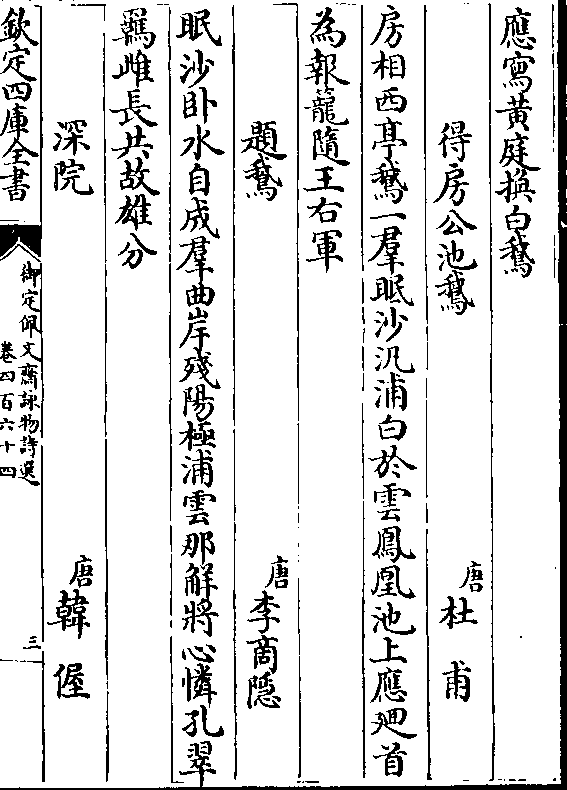 應寫黃庭換白鵝
得房公池鵝 唐杜甫
房相西亭鵝一羣眠沙汎浦白於雲鳳凰池上應廻首
為報籠隨王右軍
題鵝 唐李商隱
眠沙卧水自成羣曲岸殘陽極浦雲那解將心憐孔翠
羈雌長共故雄分
深院 唐韓偓
欽定四庫全書
御定佩文齋詠物詩選
卷四百六十四
三